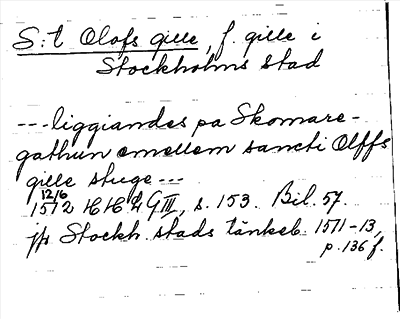 S:t Olofs gille, f. gille i
Stockholms stad
---liggiandes pa Skomare-
gathun emellem sancti Olffs
gille stuge---
12/6
1512 HH G III, s. 153. Bil. 57.
jfr Stockh. stads tänkeb. 1511-13,
p. 136 f.